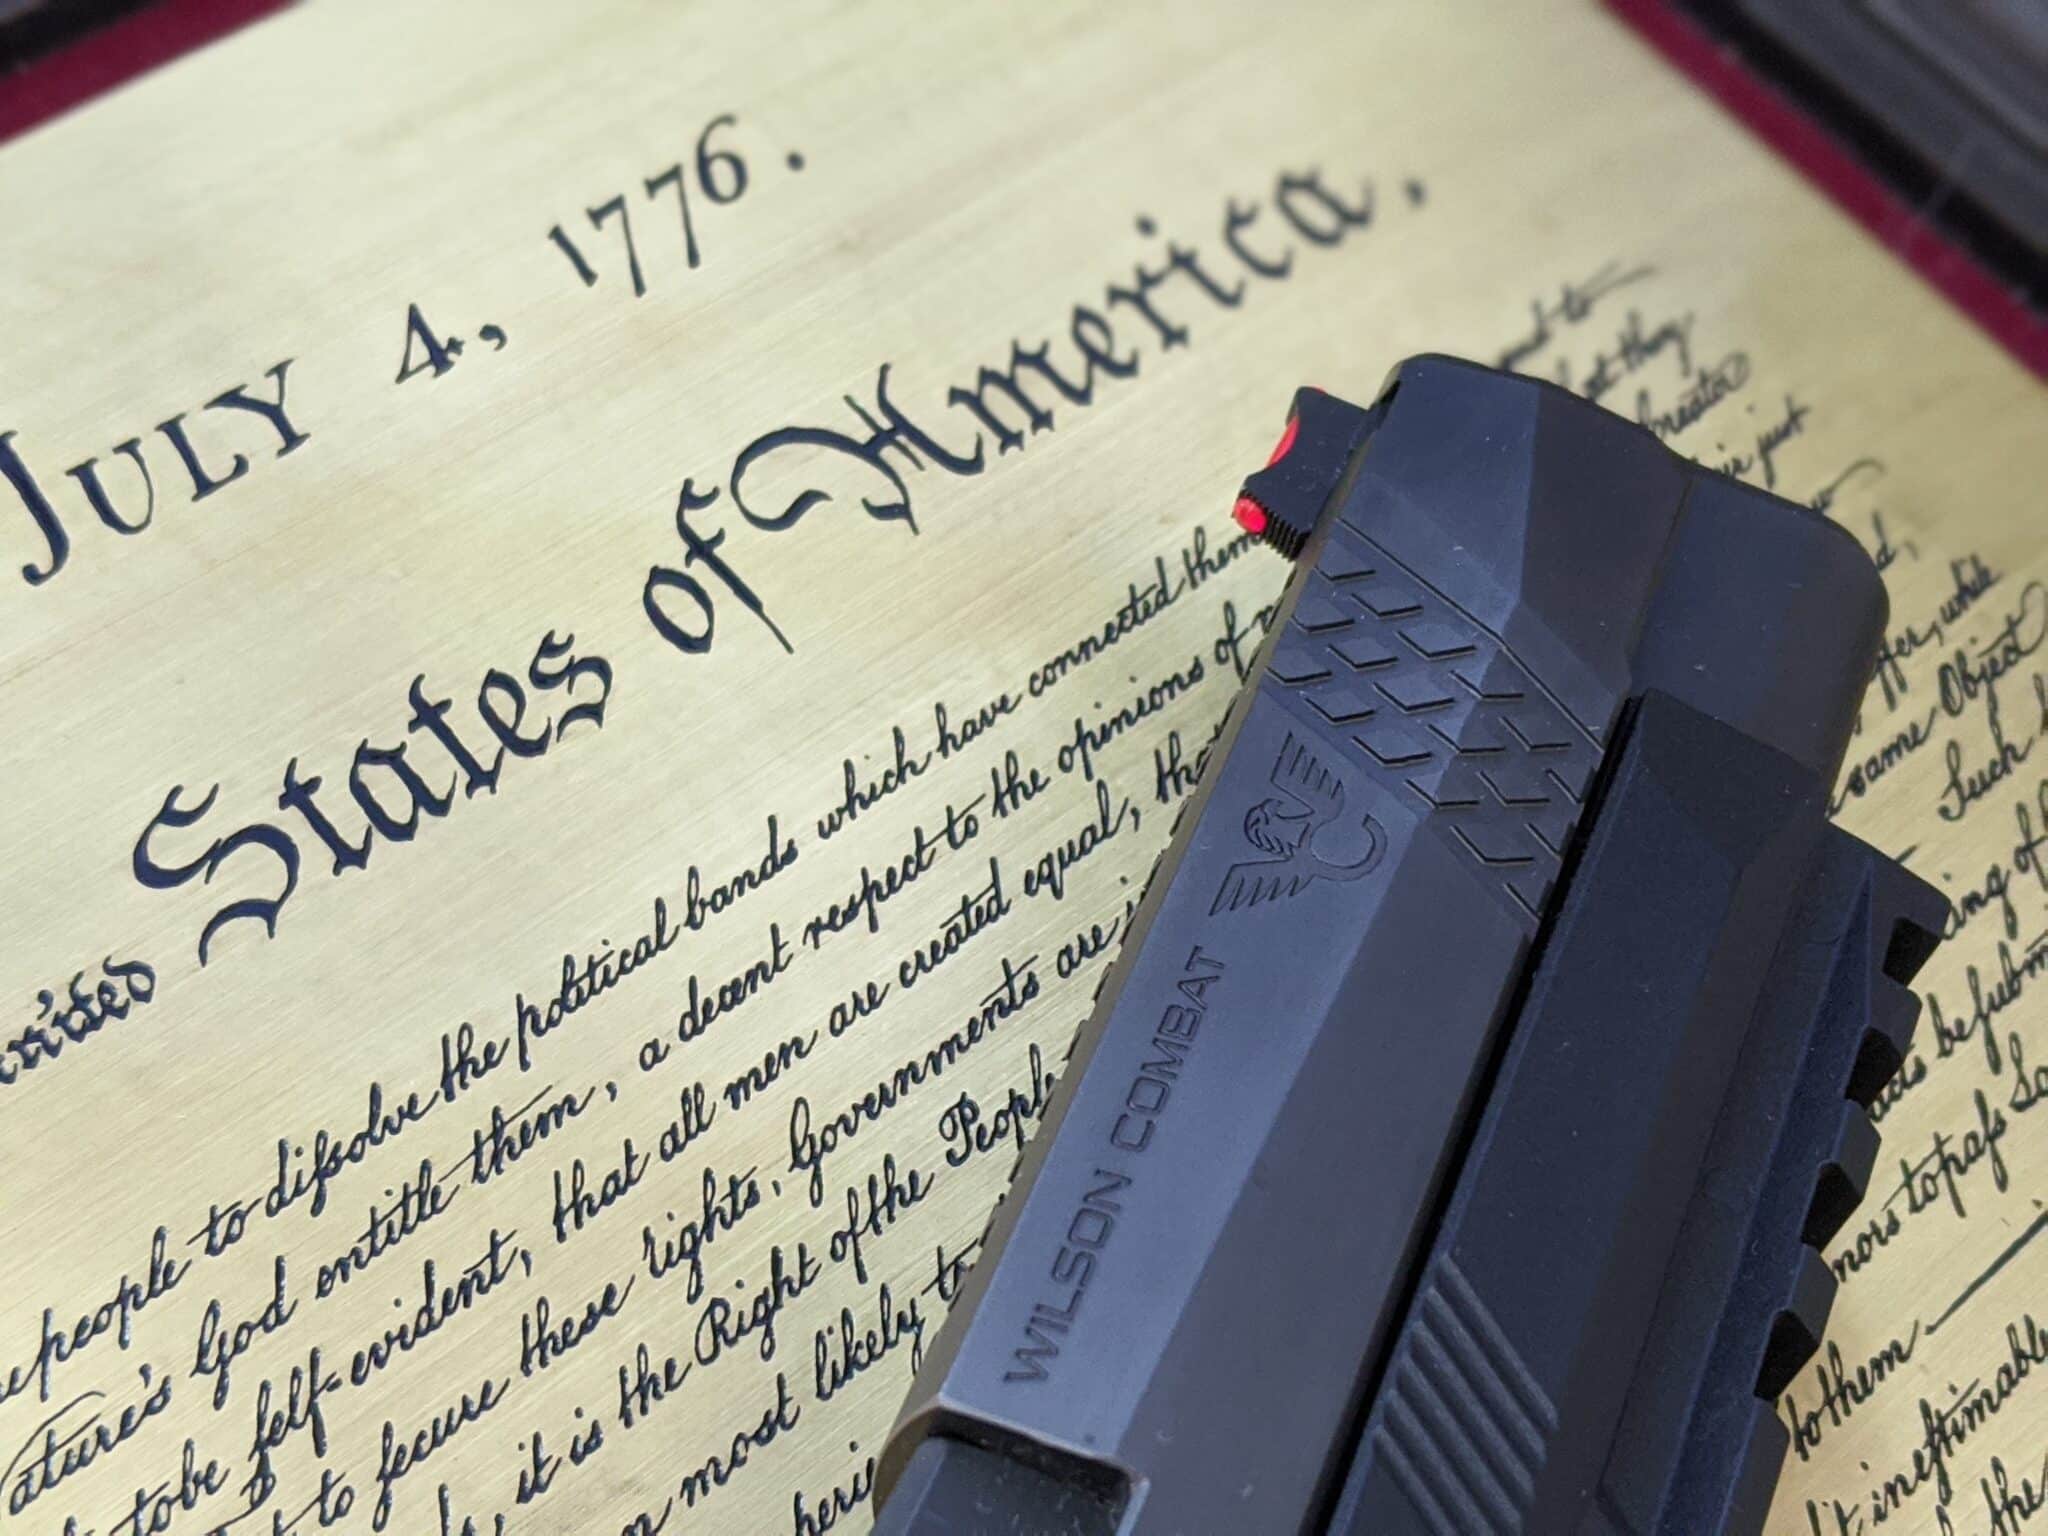 JULY 4, 1776.
States of America.
people to diſsolve the political bands which have connected them
ature's God entitle them, a decent respect to the opinions of
to be ſelf-evident, that all men are created equal, that
to ſecure these rights, Governments are
it is the Right of the People
most likely to
and to
that they
Creator
just
while
same Object
Such
be ſubm
to paſs
to them
ineſtimable
the
WILSON COMBAT